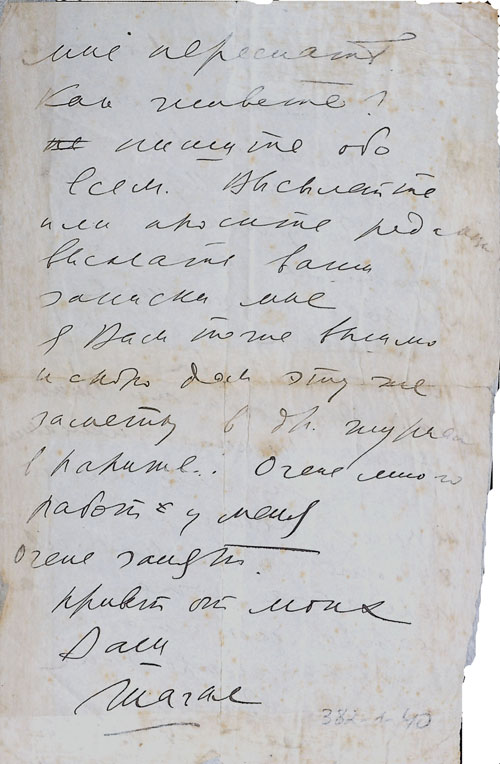 мне переслать.
Как живете?
не пишите обо
всем. Высылайте
или просите редакц
выслать ваши
записки мне
я Вам тоже вышлю
и скоро дам эту же
заметку в др. журнал
в Париже.. Очень много
работ у меня
Очень занят.
Привет от моих
Ваш
Шагал
382-1-40